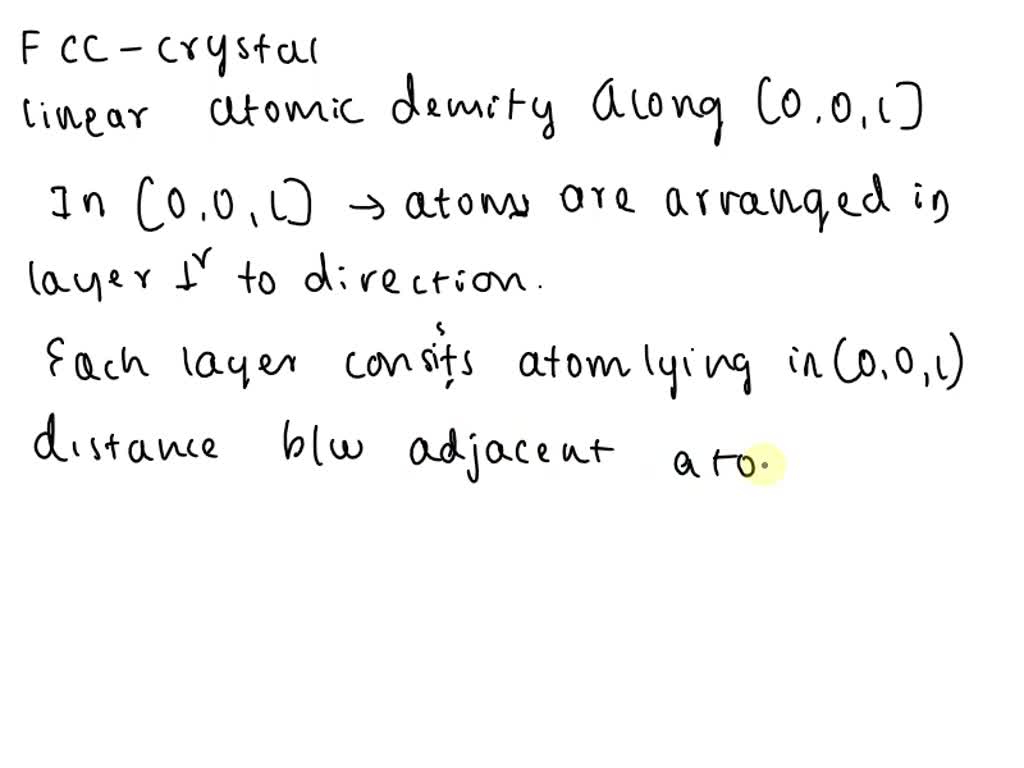 FCC - crystal
linear atomic density along [0,0,1]
In [0,0,1] → atoms are arranged in
layer ⊥r to direction.
Each layer consists atom lying in (0,0,1)
distance b/w adjacent ato